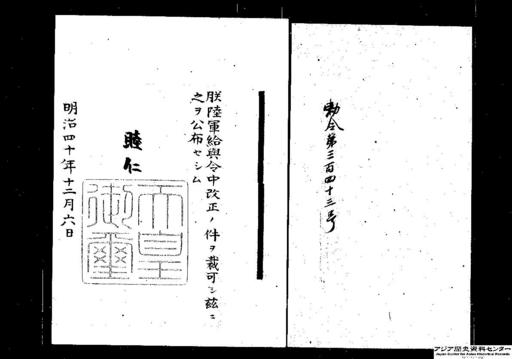 勅令第三百四十三号
朕陸軍給與令中改正ノ件ヲ裁可シ茲ニ
之ヲ公布セシム
睦仁
天皇御璽
明治四十年十二月六日
アジア歴史資料センター
Japan Center for Asian Historical Records